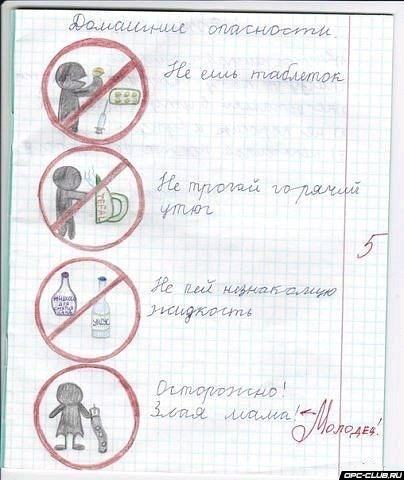 Домашние опасности.
Не ешь таблеток
TEFAL
Не трогай горячий
утюг
Не пей незнакомую
жидкость
уксус
Осторожно!
Злая мама!
Молодец!
5
OPC-CLUB.RU